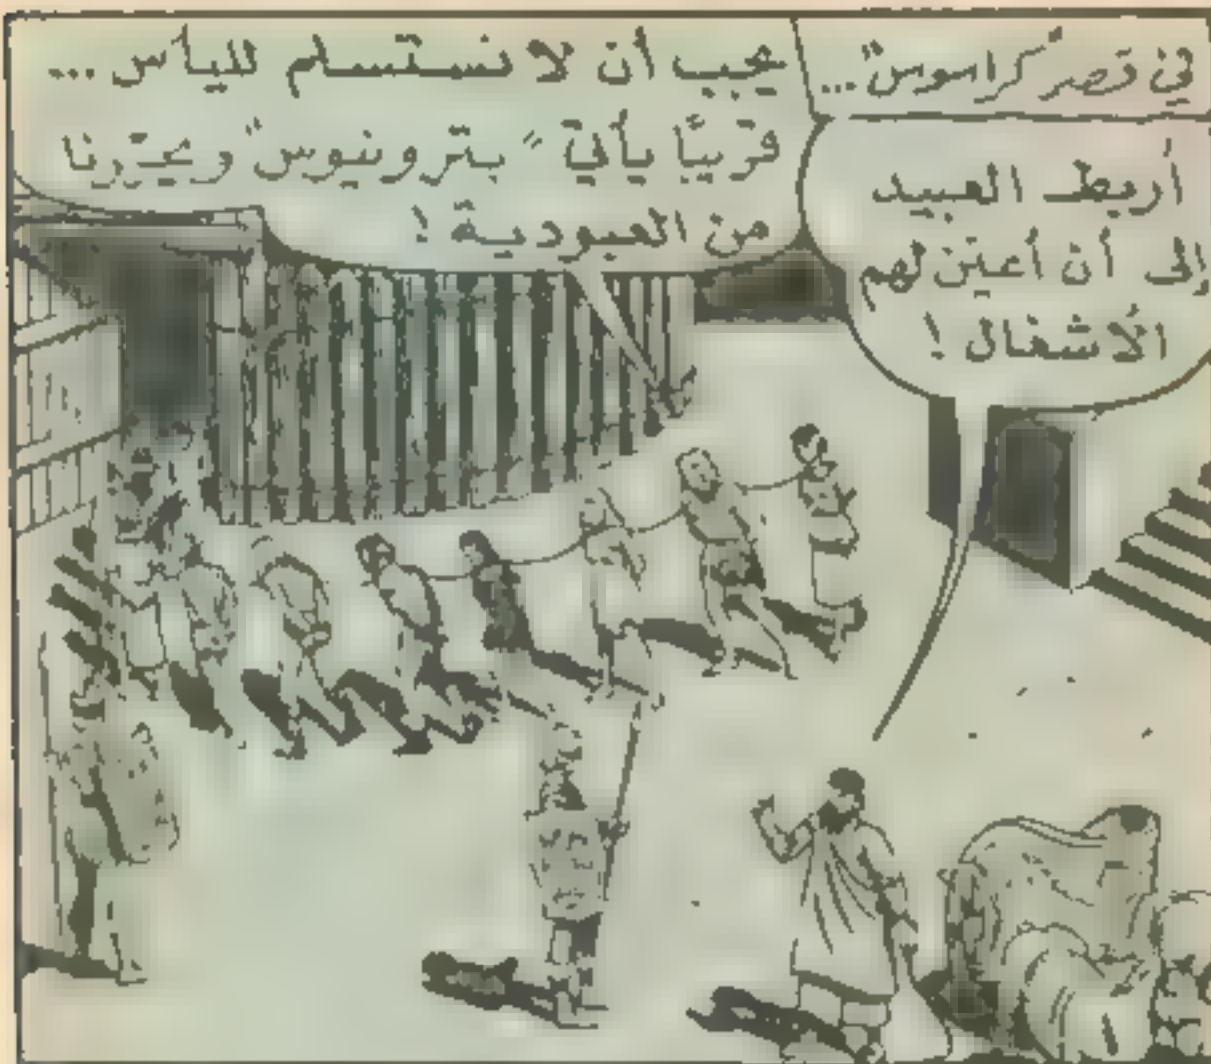 في قصر "كراسوس"...
أربط العبيد
إلى أن أعيّن لهم
الأشغال !
يجب أن لا نستسلم لليأس ...
قريبًا يأتي "بترونيوس" ويحرّرنا
من العبودية !